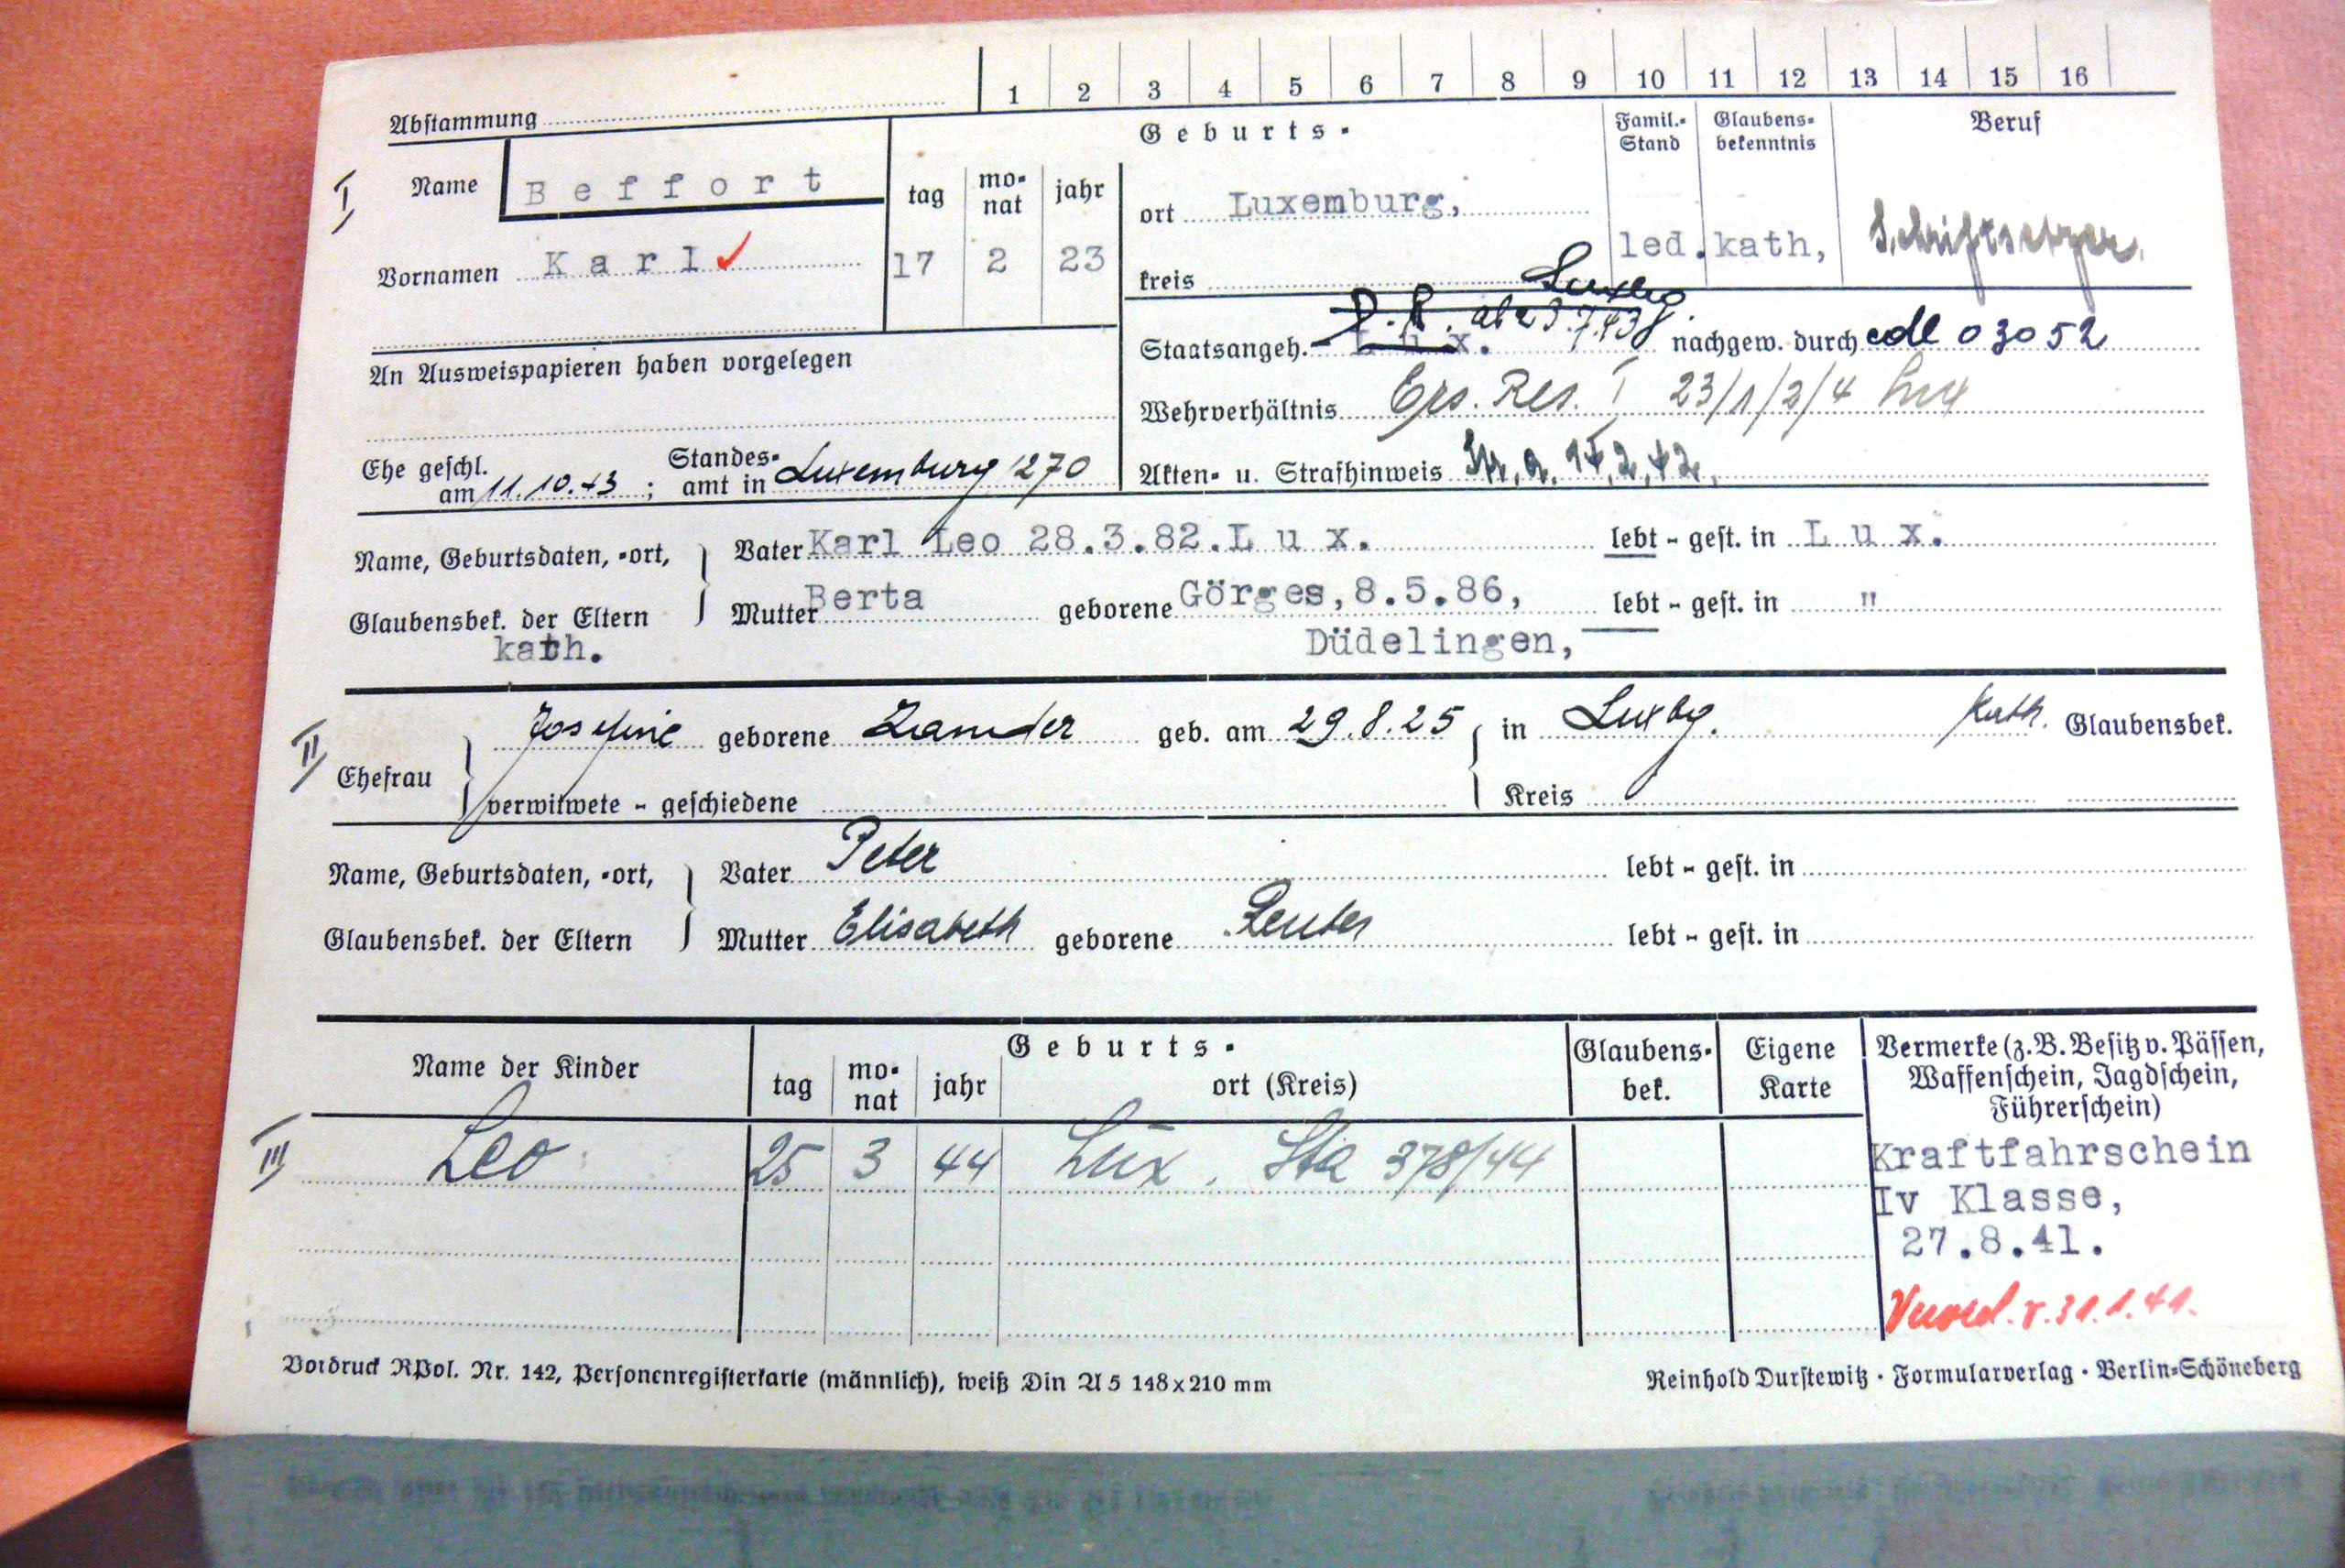 1 2 3 4 5 6 7 8 9 10 11 12 13 14 15 16
Abstammung
Geburts-
Famil.-Stand
Glaubens-bekenntnis
Beruf
I
Name Beffort
tag monat jahr
ort Luxemburg,
Vornamen Karl ✓
17 2 23
led. kath, Schriftsetzer
kreis
Luxbg
D.R. ab 23.7.43
Staatsangeh. Lux. nachgew. durch edl 03052
An Ausweispapieren haben vorgelegen
Wehrverhältnis Ers. Res. I 23/1/2/4 Lux
Ehe geschl. am 11.10.43; Standesamt in Luxemburg 1270
Akten- u. Strafhinweis Str. a. 17.2.42.
Name, Geburtsdaten, -ort, Vater Karl Leo 28.3.82. Lux. lebt - gest. in Lux.
Glaubensbek. der Eltern Mutter Berta geborene Görges, 8.5.86, lebt - gest. in "
kath. Düdelingen,
II
Josefine geborene Zander geb. am 29.8.25 in Luxbg. Kath. Glaubensbek.
Ehefrau
verwitwete - geschiedene Kreis
Name, Geburtsdaten, -ort, Vater Peter lebt - gest. in
Glaubensbek. der Eltern Mutter Elisabeth geborene Reuter lebt - gest. in
Name der Kinder
Geburts-
tag monat jahr ort (Kreis)
Glaubens-bek.
Eigene Karte
Vermerke (z.B. Besitz v. Pässen,
Waffenschein, Jagdschein,
Führerschein)
III Leo 25 3 44 Lux. Sta 378/44
Kraftfahrschein
Iv Klasse,
27.8.41.
v. 31.1.41.
Vordruck RPol. Nr. 142, Personenregisterkarte (männlich), weiß Din A5 148x210 mm
Reinhold Durstewitz · Formularverlag · Berlin-Schöneberg